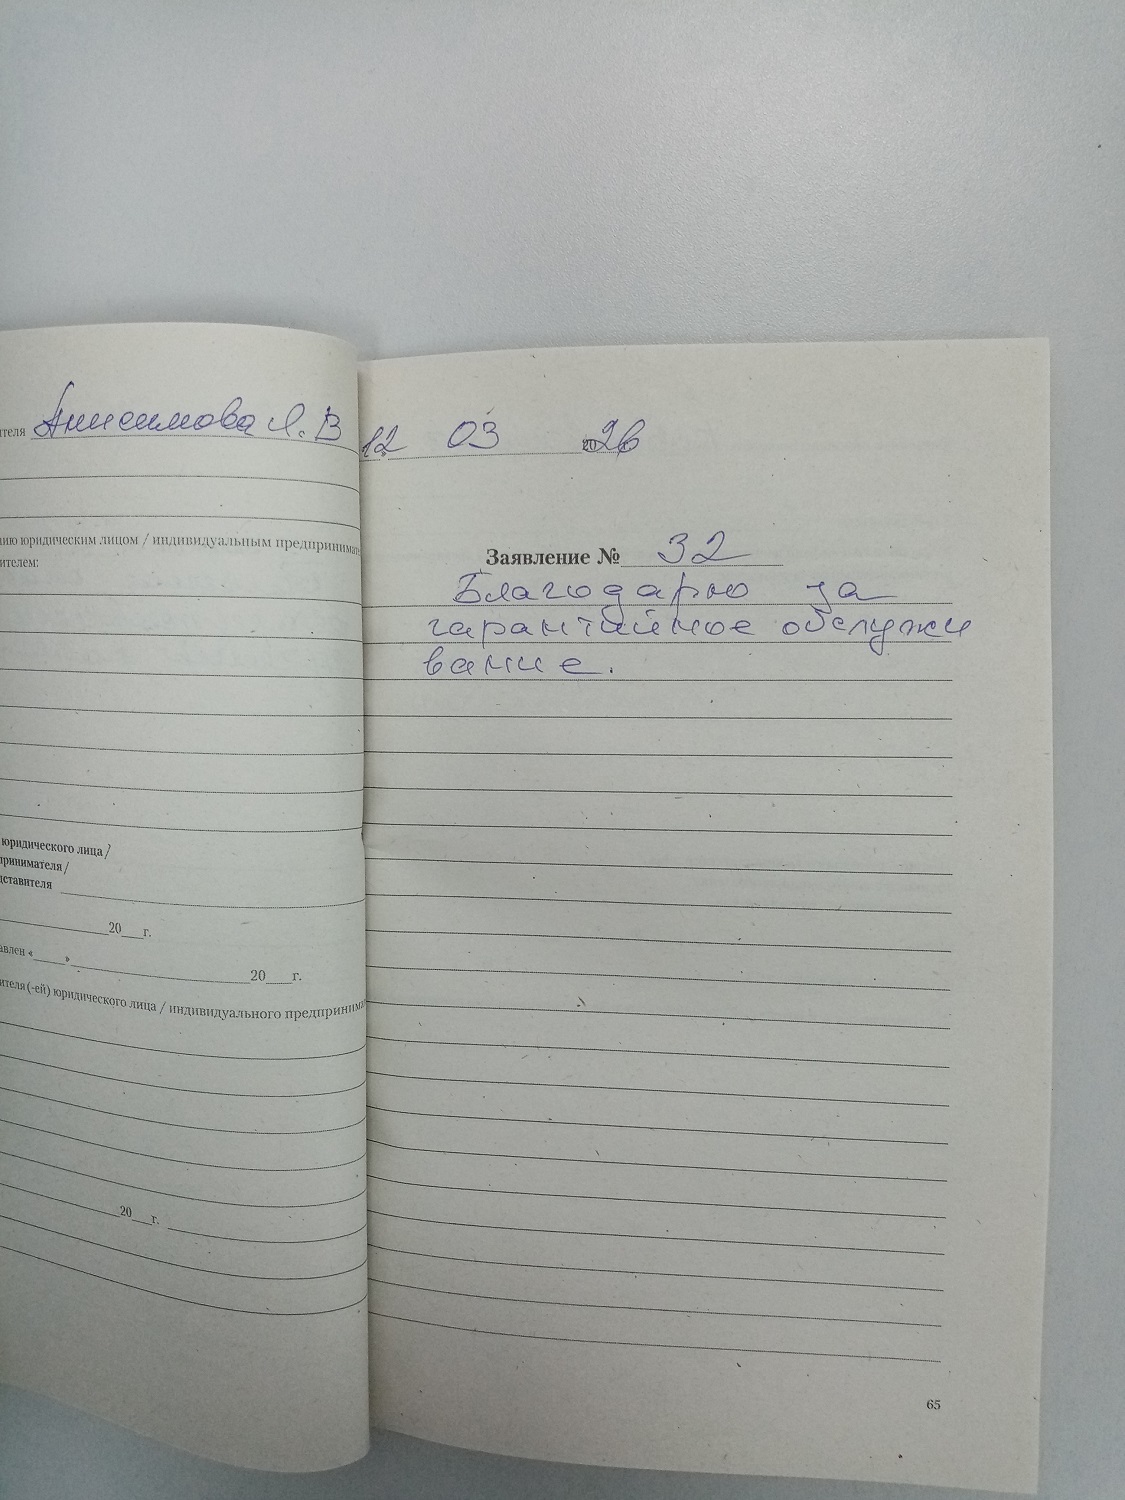 ителя Анисимова Л. В
нию юридическим лицом / индивидуальным предпринимате
ителем:
юридического лица /
принимателя /
дставителя
20___г.
авлен «____»____20___г.
ителя (-ей) юридического лица / индивидуального предпринима
20___г.
12 03 2026
Заявление № 32
Благодарю за
гарантийное обслужи
вание.
65